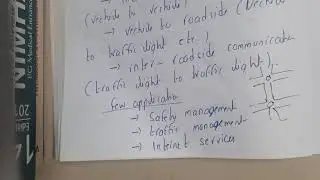 (vechile to vechile)
→ vechile to roadside (vechile
to traffic light etc..)
→ inter-roadside communication
(traffic light to traffic light).
few application
→ Safety management
→ traffic management
→ Internet services
NIMHA
PG Medical Entrance
Edition
20